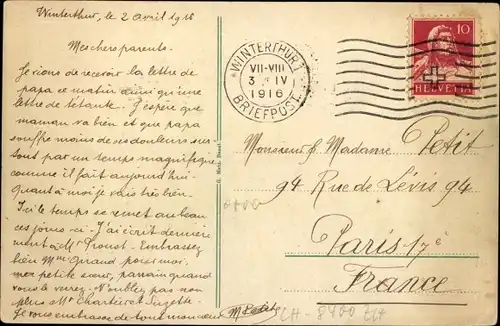 Winterthur, le 2 avril 1916
Mes chers parents.
Je viens de recevoir la lettre de
papa ce matin ainsi qu'une
lettre de tétante. J'espère que
maman va bien et que papa
souffre moins de ses douleurs sur-
tout par un temps magnifique
comme il fait aujourd'hui
Quant à moi je vais très bien.
Ici le temps se remet au beau
ces jours-ci. J'ai écrit dernière
ment à Mr Proust. Embrassez
bien Mme Quand pour moi,
ma petite sœur, parrain quand
vous le verrez. N'oubliez pas non
plus Mr Charlier et Suzette.
Je vous embrasse de tout mon cœur
M Petit
WINTERTHUR 1
VII-VIII
3 IV
1916
BRIEFPOST
10
HELVETIA
Monsieur & Madame Petit
94 Rue de Lévis 94
Paris 17e
France
CH-8400